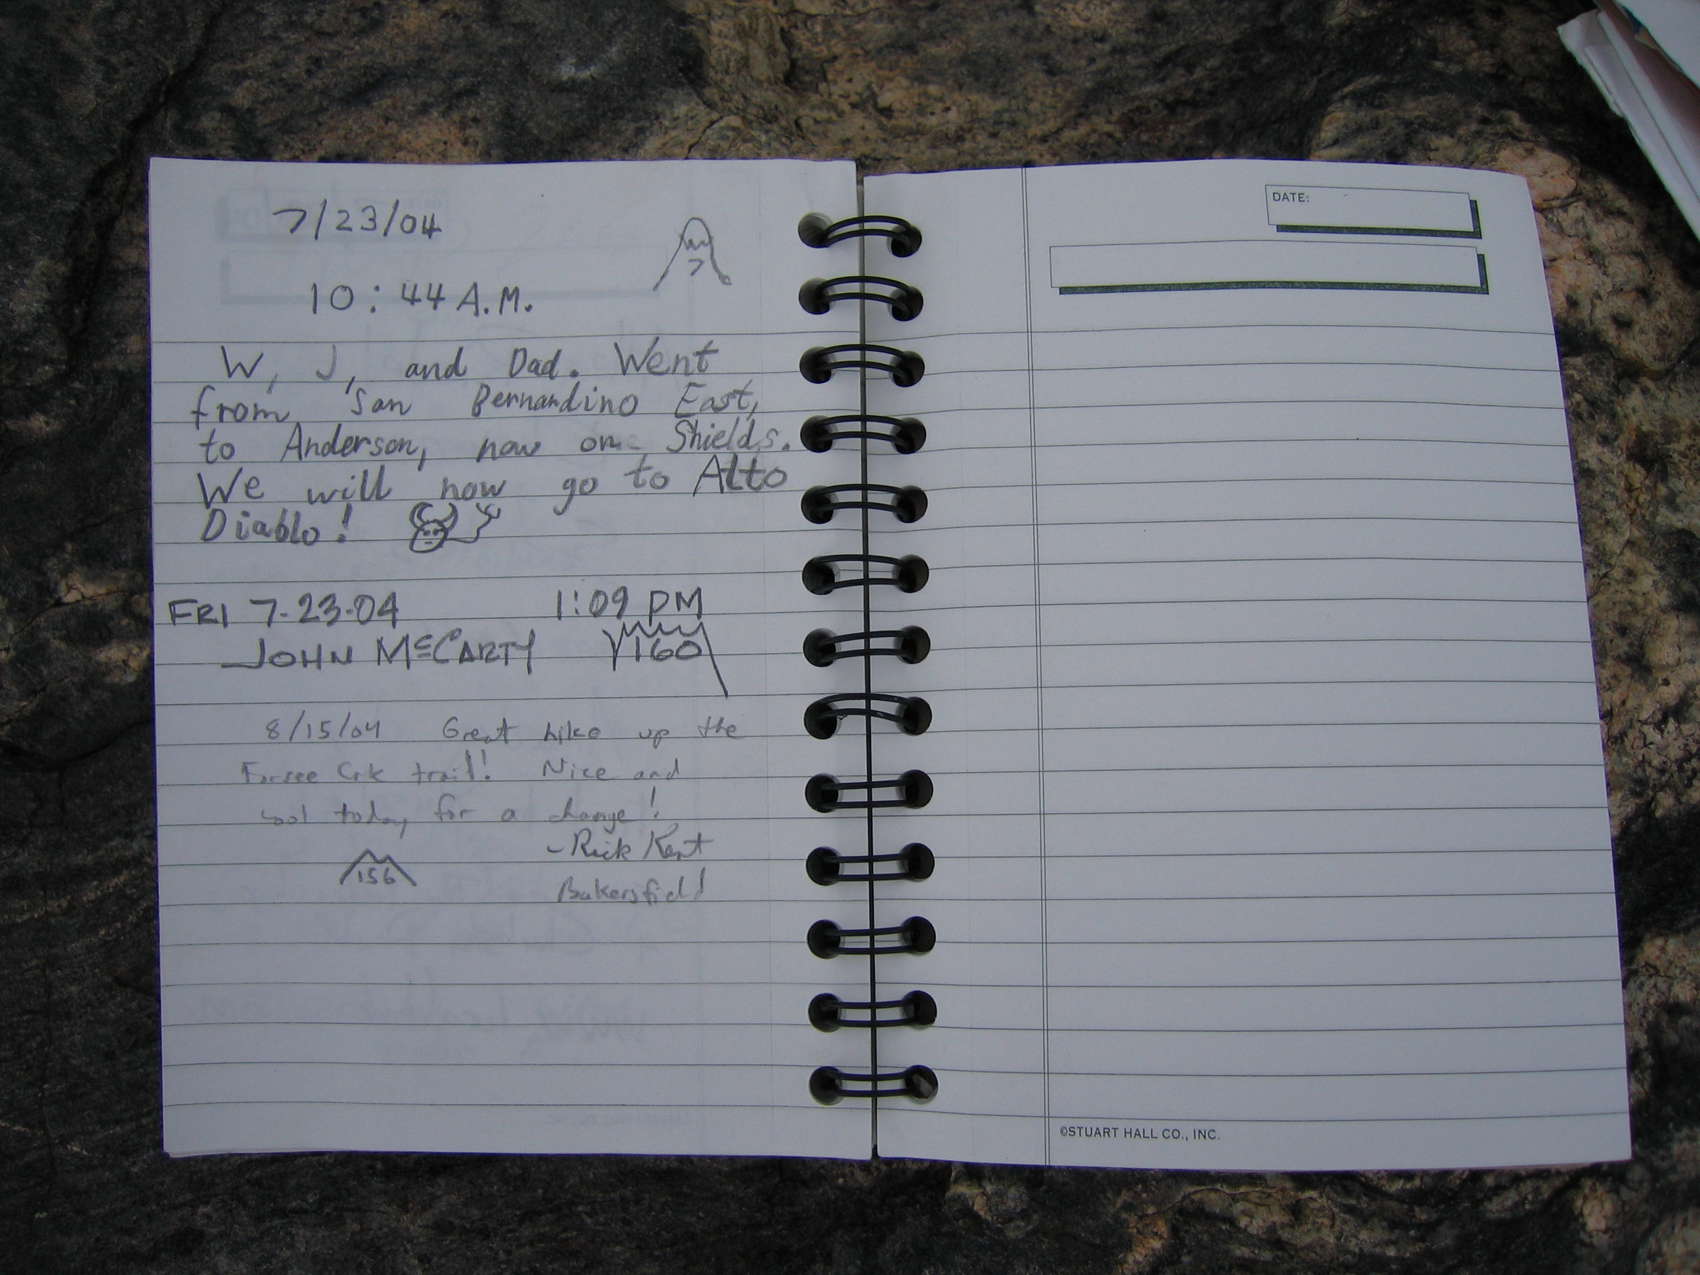 7/23/04
7
10:44 A.M.
W, J, and Dad. Went
from San Bernardino East,
to Anderson, now on Shields.
We will now go to Alto
Diablo!
FRI 7-23-04 1:09 PM
JOHN McCARTY 160
8/15/04 Great hike up the
Forsee Crk trail! Nice and
cool today for a change!
-Rick Kent
156
Bakersfield
DATE:
©STUART HALL CO., INC.